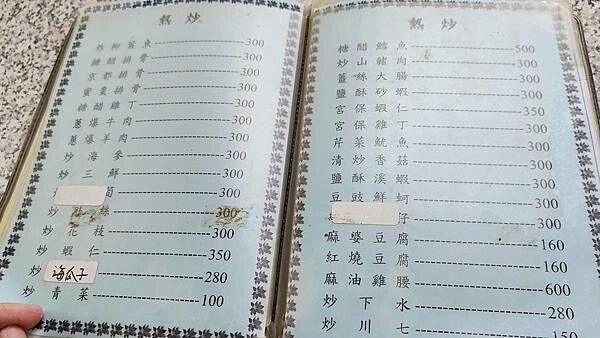 熱炒
炸柳葉魚 300
糖醋排骨 300
京都排骨 300
蜜棗排骨 300
糖醋雞丁 300
蔥爆牛肉 300
蔥爆羊肉 300
炒海參 300
炒三鮮 300
300
炒 絲 300
炒花枝 300
炒蝦仁 350
炒海瓜子 280
炒青菜 100
熱炒
糖醋鱈魚 500
炒山豬肉 300
薑絲大腸 300
鹽酥砂蝦 300
宮保蝦仁 350
宮保雞丁 300
芹菜魷魚 300
清炒香菇 300
鹽酥溪蝦 300
豆豉鮮蚵 300
仔 300
麻婆豆腐 160
紅燒豆腐 160
麻油雞腰 600
炒下水 280
炒川七 150